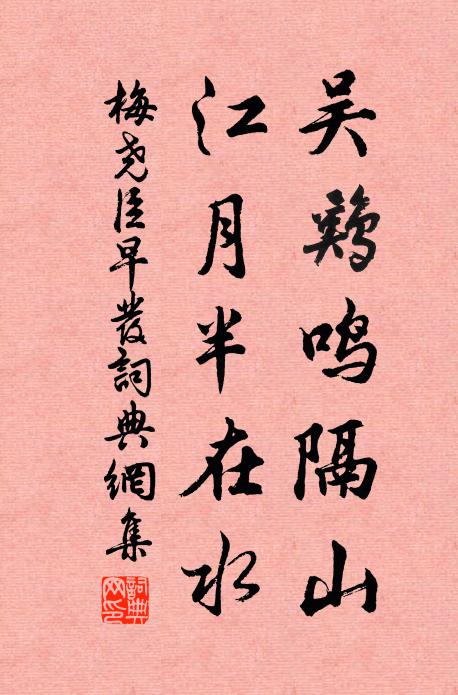 吴鷄鸣隔山
江月半在水
梅尧臣早發詞典網集
詞典網印